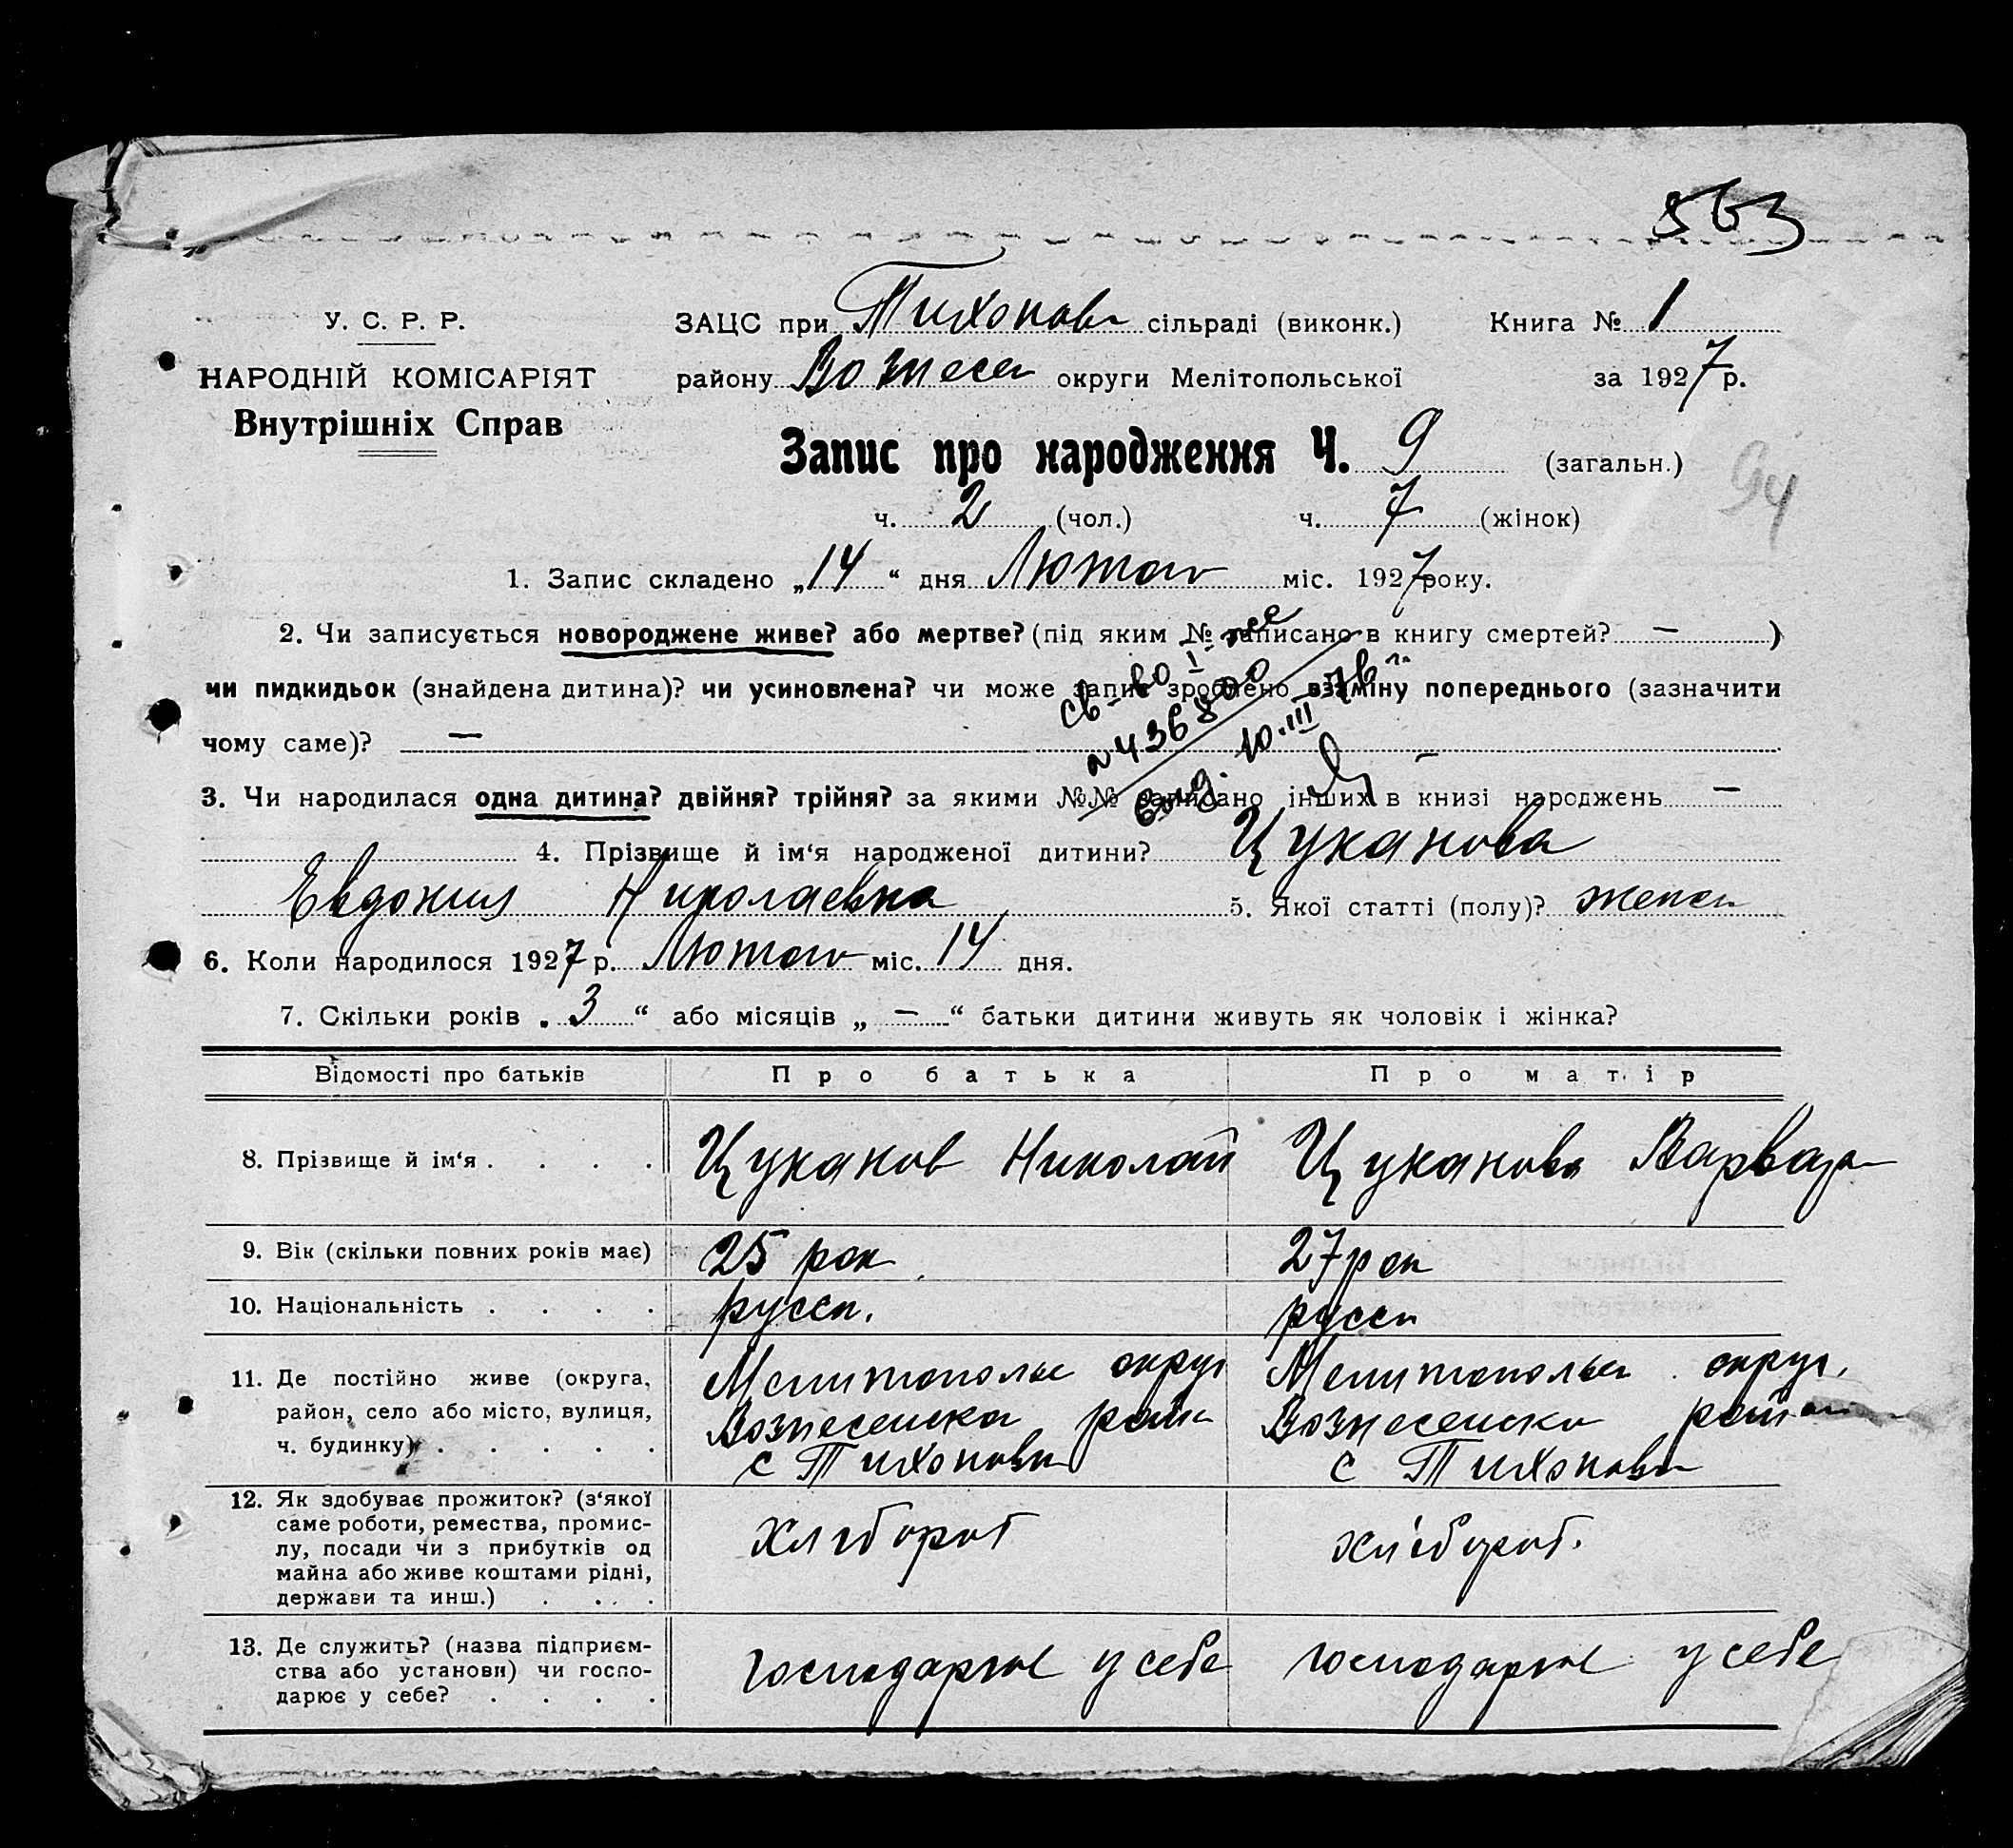 563
У. С. Р. Р.
НАРОДНІЙ КОМІСАРІЯТ
Внутрішніх Справ
ЗАЦС при Тихонов сільраді (виконк.) Книга № 1
району Вознесен округи Мелітопольської за 1927 р.
Запис про народження Ч. 9 (загальн.)
94
ч. 2 (чол.) ч. 7 (жінок)
1. Запис складено „14“ дня Лютого міс. 1927 року.
2. Чи записується новороджене живе? або мертве? (під яким № записано в книгу смертей? — )
чи пидкидьок (знайдена дитина)? чи усиновлена? чи може запис зроблено взаміну попереднього (зазначити
чому саме)? —
св-во I-
№436800
выд. 10.III-
3. Чи народилася одна дитина? двійня? трійня? за якими №№ записано інших в книзі народжень —
4. Прізвище й ім‘я народженої дитини? Цуканова
Евдокия Николаевна 5. Якої статті (полу)? женск
6. Коли народилося 1927 р. Лютого міс. 14 дня.
7. Скільки років „3“ або місяців „—“ батьки дитини живуть як чоловік і жінка?
Відомості про батьків Про батька Про матір
8. Прізвище й ім‘я . . . . Цуканов Николай Цуканова Варвара
9. Вік (скільки повних років має) 25 рок 27 рок
10. Національність . . . . русск. русск
11. Де постійно живе (округа, Мелитопольс округ Мелитопольск округ.
район, село або місто, вулиця, Вознесенска район Вознесенска район
ч. будинку) . . . . . с Тихоновка с Тихоновка
12. Як здобуває прожиток? (з‘якої
саме роботи, ремества, промис- хлібороб хлібороб.
лу, посади чи з прибутків од
майна або живе коштами рідні,
держави та инш.) . . . .
13. Де служить? (назва підприєм- господарює у себе господарює у себе
ства або установи) чи госпо-
дарює у себе? . . . .